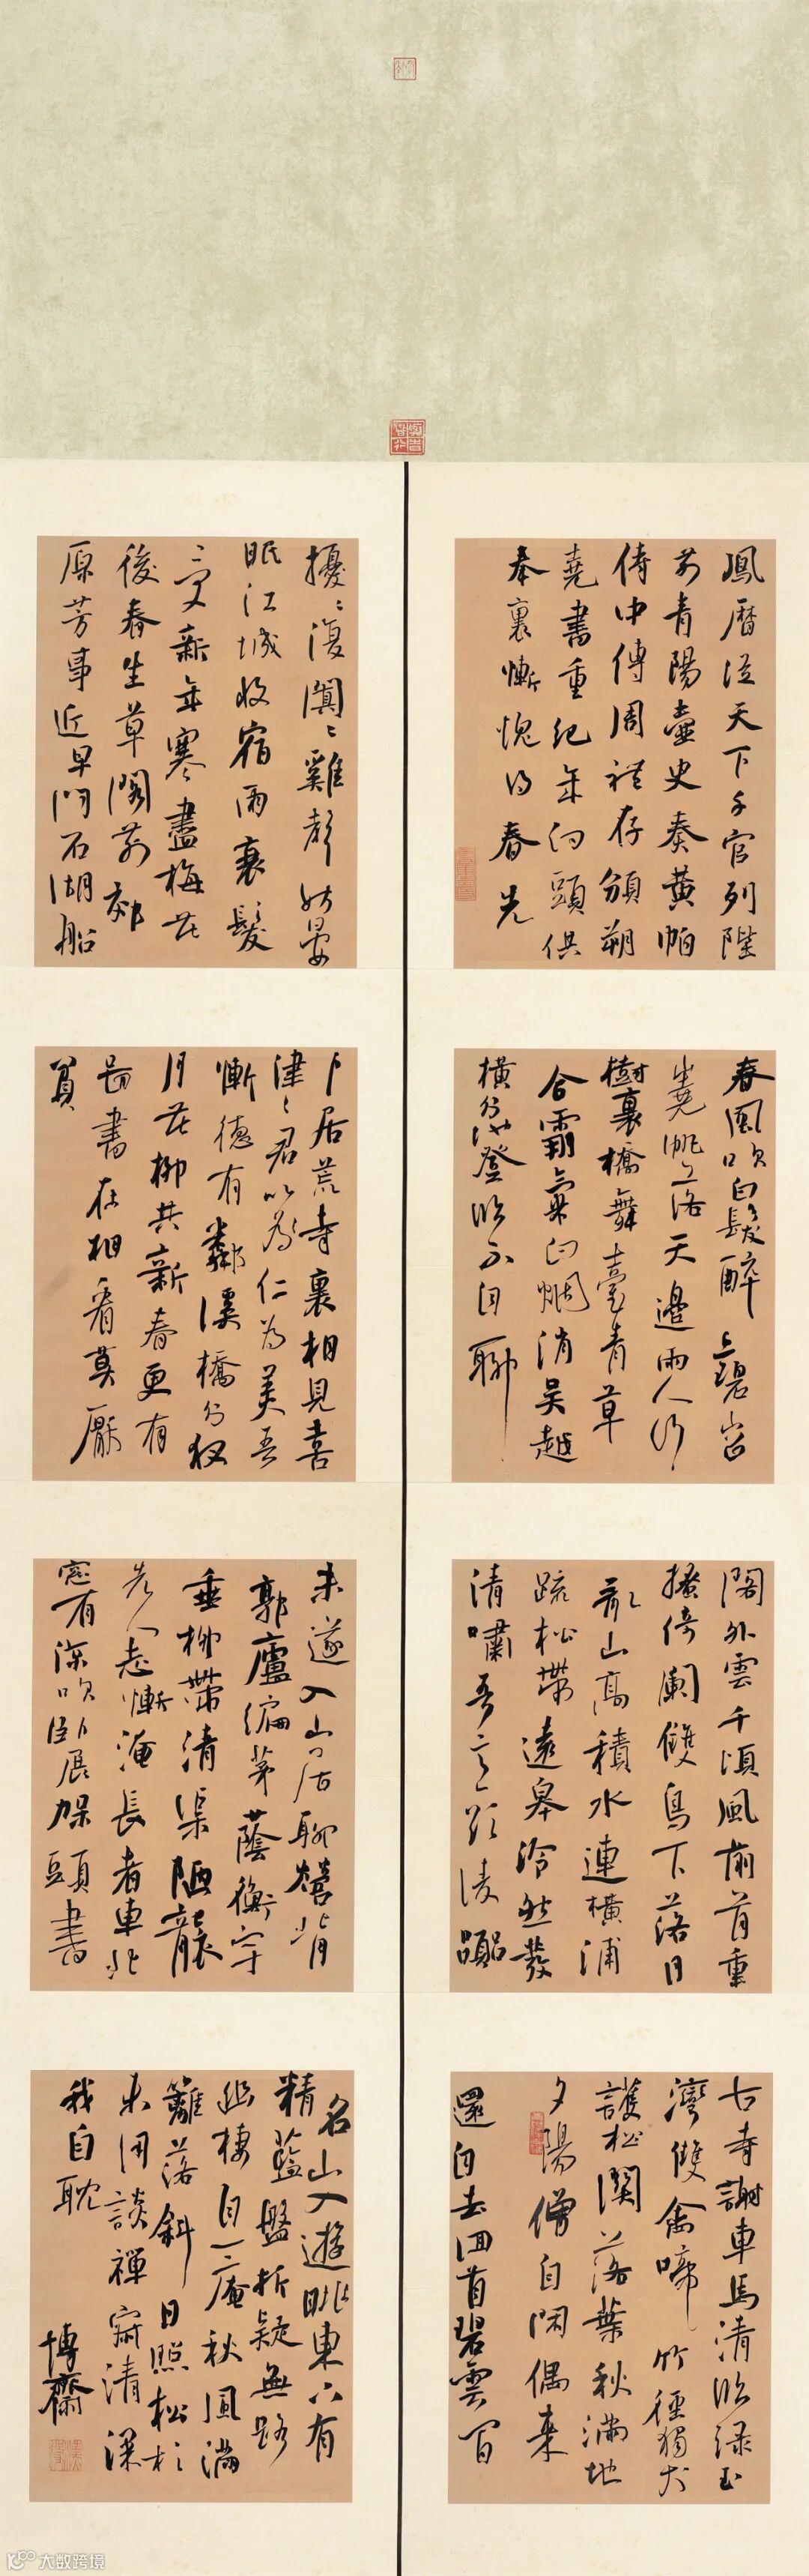 鳳曆從天下千官列陛
前青陽壺史奏黃帕
侍中傳周禮存頒朔
堯書重紀年白頭俱
奉裏慚愧得春先
春風吹白髮醉上碧岧
嶢帆落天邊雨人行
樹裏橋舞臺青草
合霸氣白煙消吳越
橫分地登臨不自聊
閣外雲千頃風前首重
搔倚闌雙鳥下落日
亂山高積水連橫浦
疏松帶遠皋泠然發
清嘯吾意欲凌
古寺謝車馬清臨綠玉
灣雙禽啼竹徑獨犬
護松關落葉秋滿地
夕陽僧自閑偶來
還自去回首碧雲間
擾〻復闐〻雞聲始晏
眠江城收宿雨衰鬢
受新年寒盡梅花
後春生草閣前郊
原芳事近早問石湖船
卜居荒寺裏相見喜
津〻君以為仁為美吾
慚德有鄰溪橋分夜
月花柳共新春更有
圖書在相看莫厭
貧
未遂入山居聊營背
郭廬編茅蔭衡宇
垂柳帶清渠陋襲
先人志慚淹長者車北
窗有涼吹臥展架頭書
名山入遊眺東有
精藍盤折疑無路
幽棲自一庵秋風滿
籬落斜日照松杉
來問談禪窟清深
我自耽
博齋
大数跨境